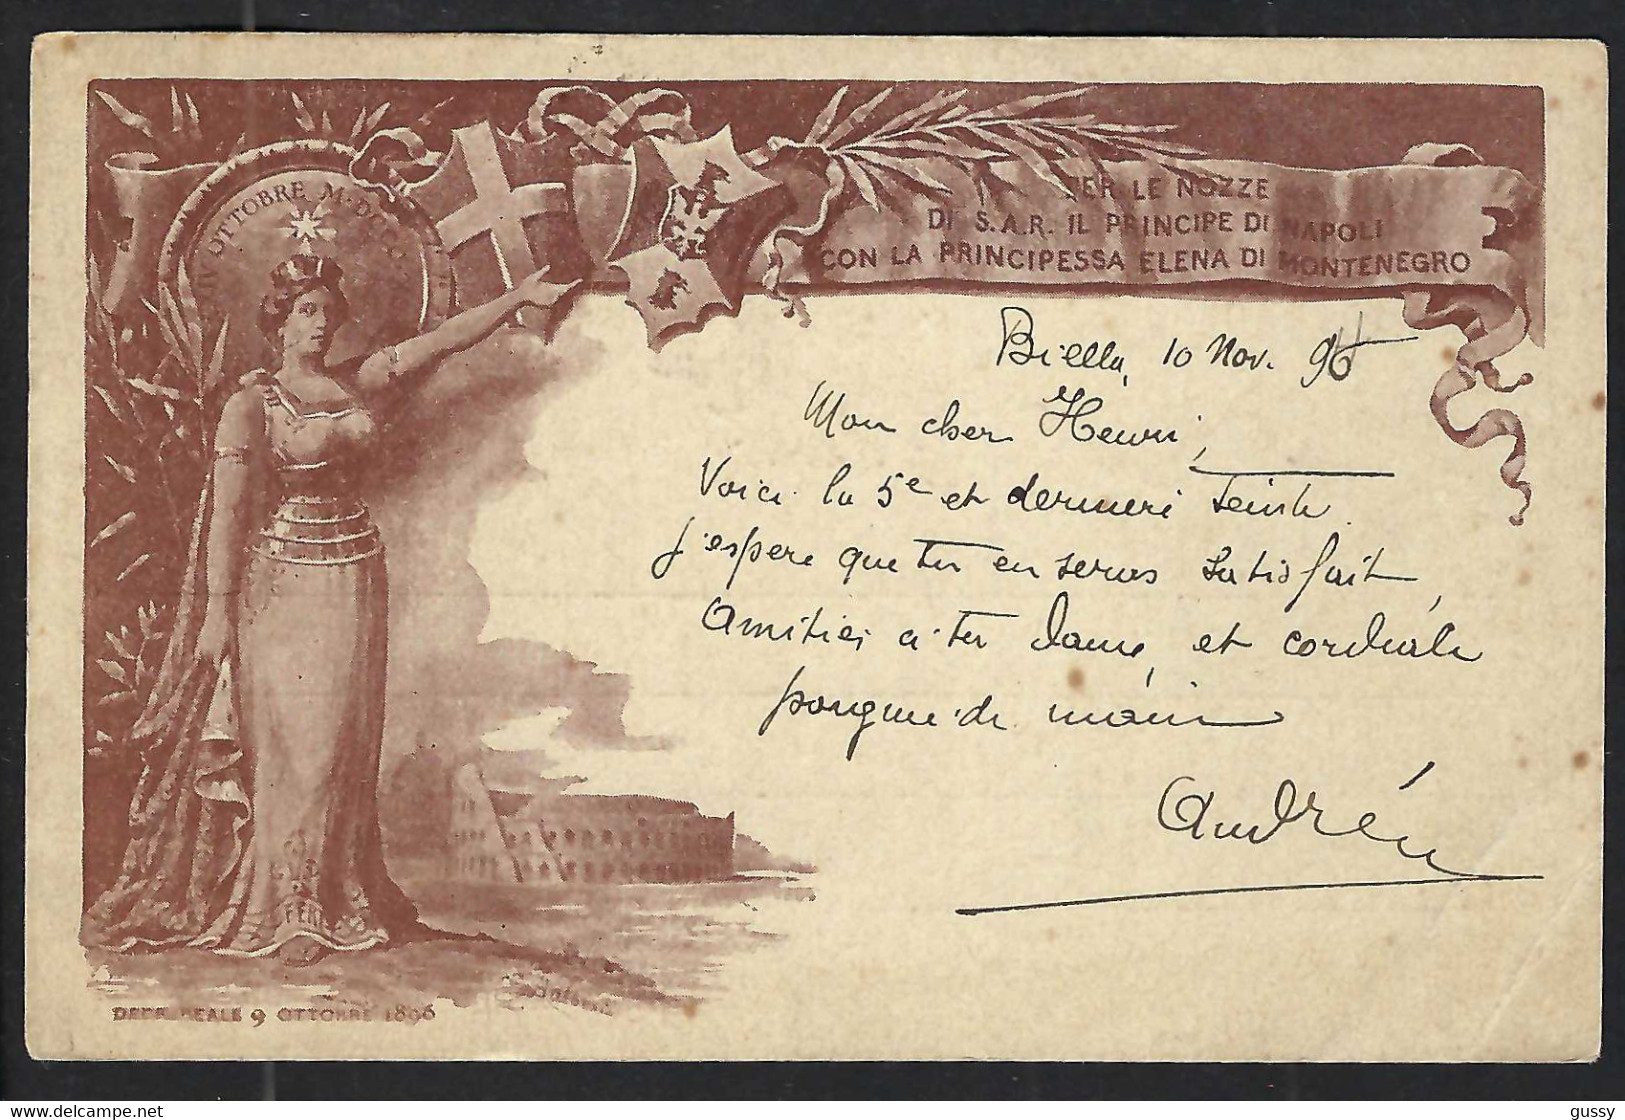 OTTOBRE M·DCCC
PER LE NOZZE
DI S.A.R. IL PRINCIPE DI NAPOLI
CON LA PRINCIPESSA ELENA DI MONTENEGRO
Biella, 10 Nov. 96
Mon cher Henri,
Voici la 5e et derniere teinte
j'espere que tu en seras satisfait,
Amitiés a ta dame, et cordiale
poignee de main
André
FERT
DECR. REALE 9 OTTOBRE 1896
delcampe.net
gussy